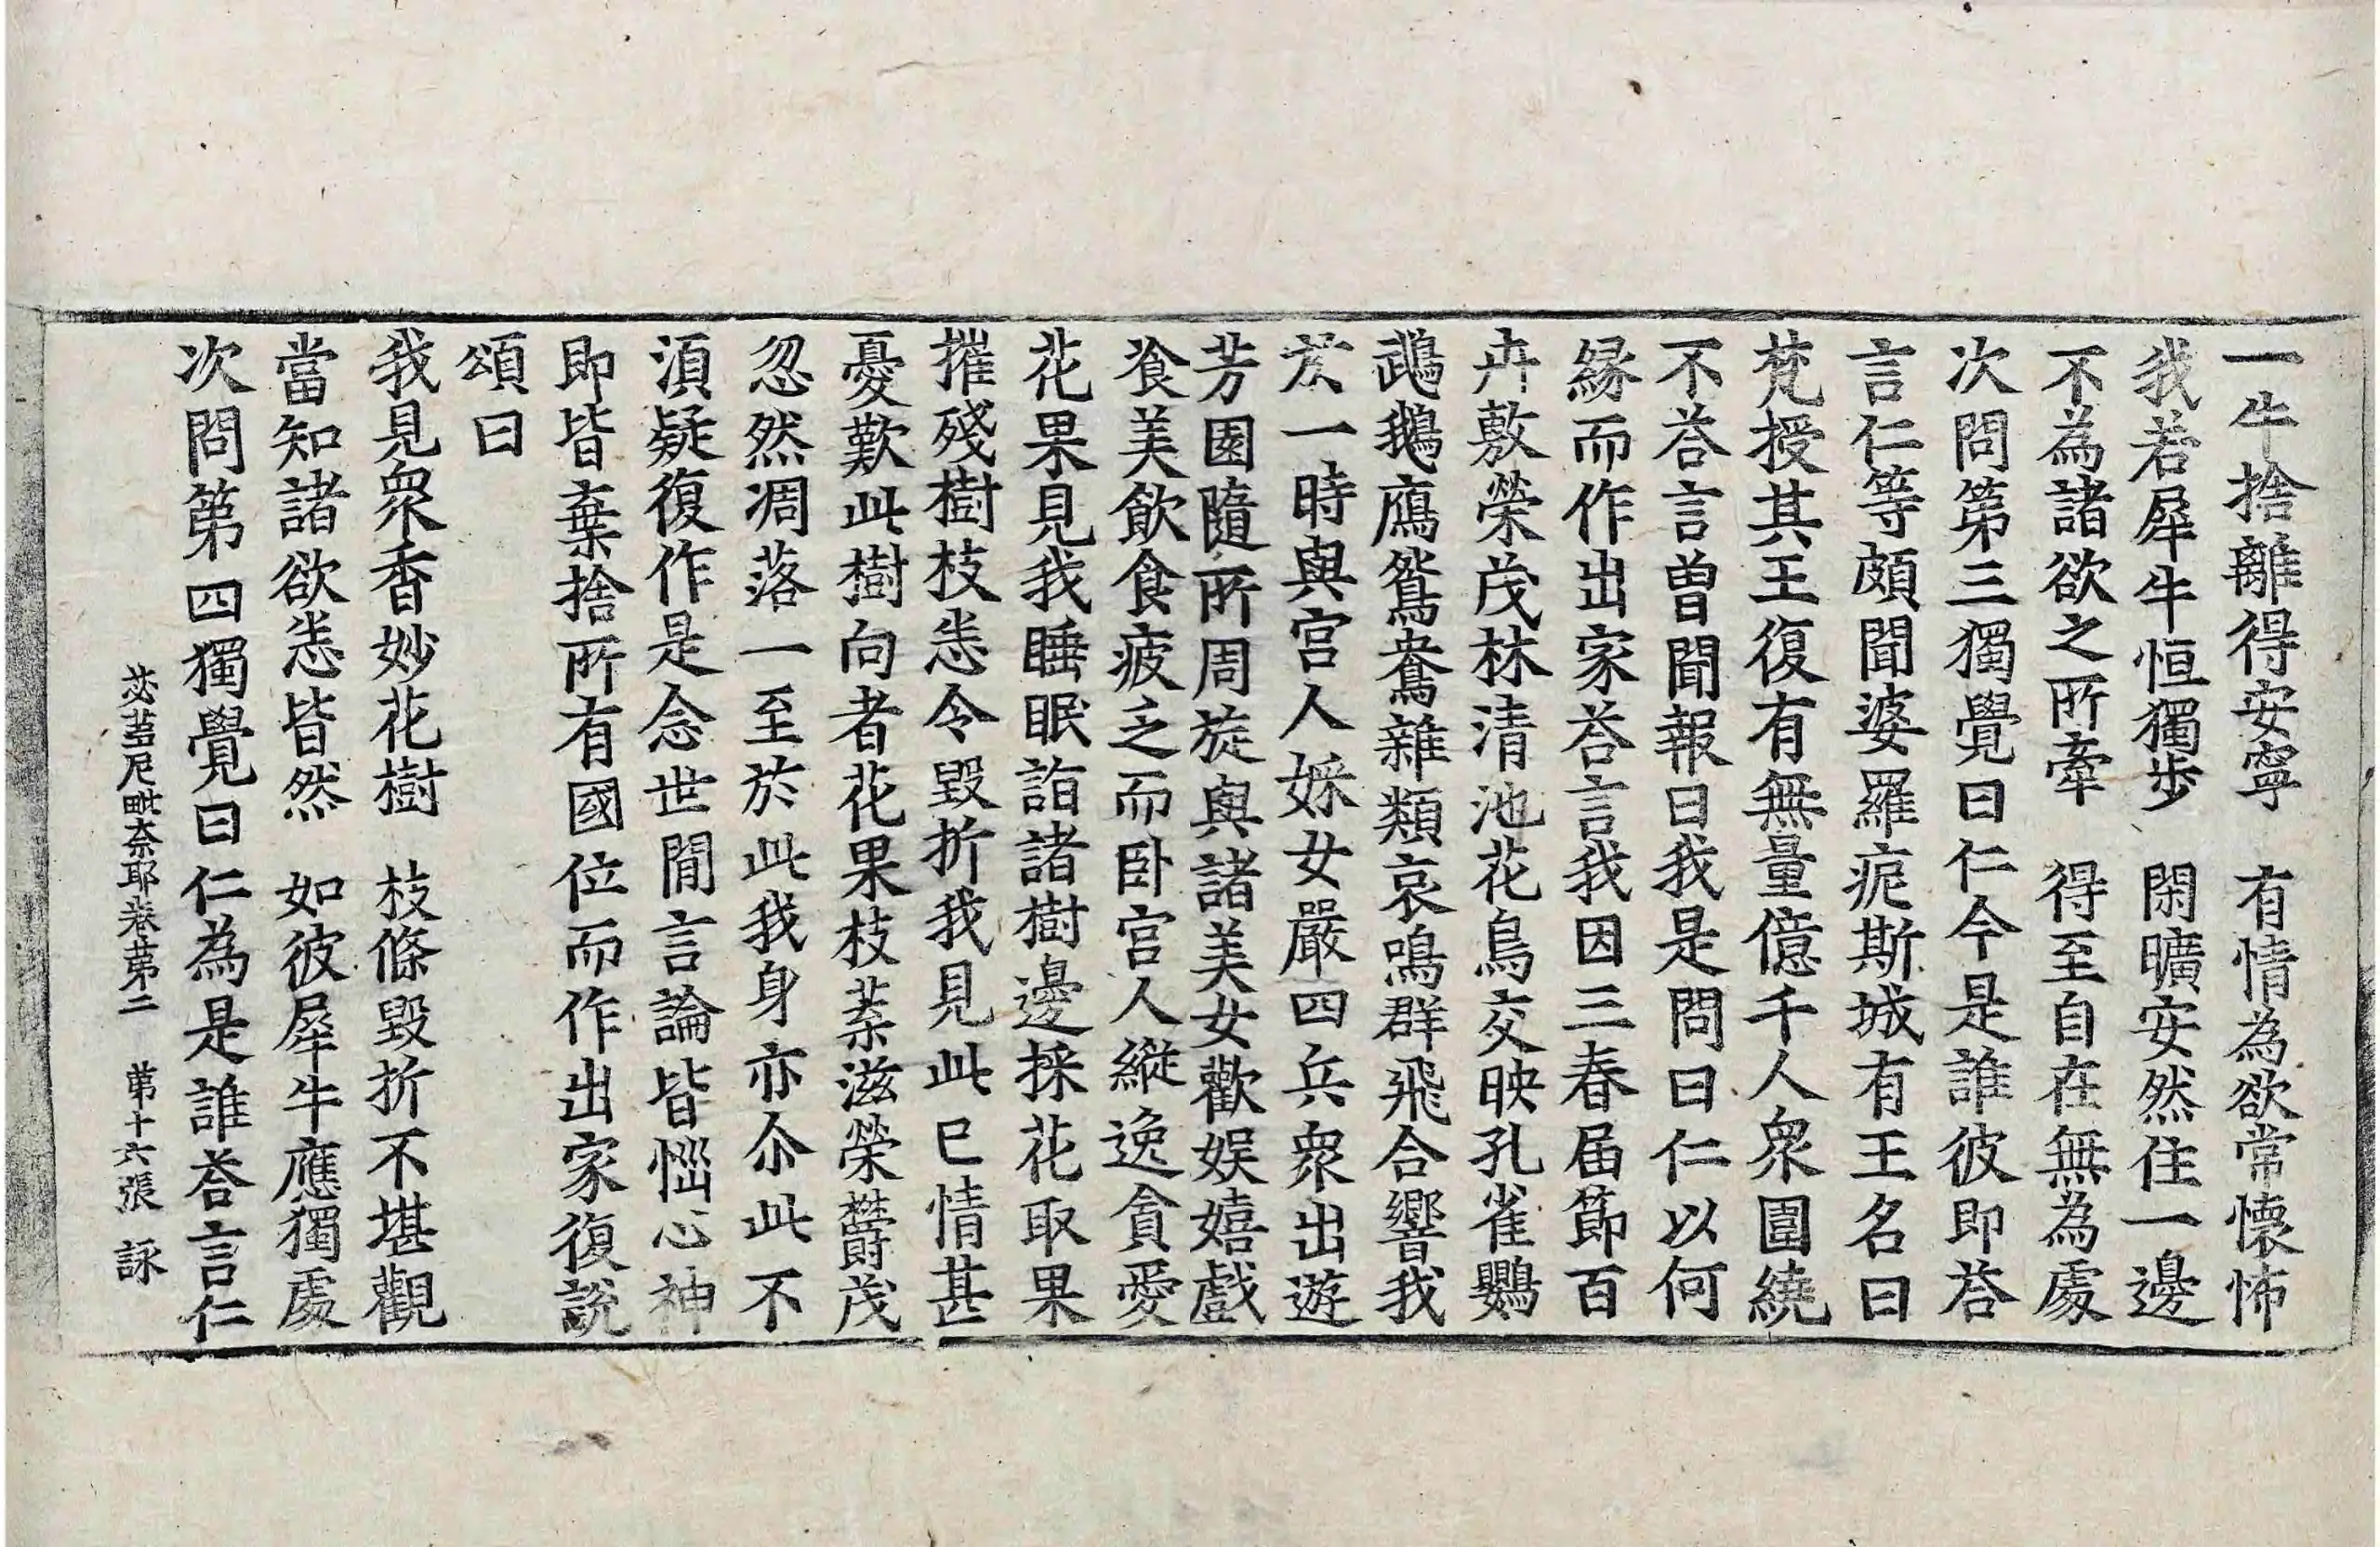 一牛捨離得安寧　有情為欲常懷怖
我若犀牛恒獨步　閑曠安然住一邊
不為諸欲之所牽　得至自在無為處
次問第三獨覺曰仁今是誰彼即荅
言仁等頗聞婆羅痆斯城有王名曰
梵授其王復有無量億千人衆圍繞
不荅言曽聞報曰我是問曰仁以何
緣而作出家荅言我因三春届節百
卉敷榮茂林清池花鳥交映孔雀鸚
鵡鵝鴈鴛鴦雜類哀鳴群飛合響我
於一時與宫人婇女嚴四兵衆出遊
芳園隨所周旋與諸美女歡娱嬉戲
飡美飲食疲乏而卧宫人縱逸貪愛
花果見我睡眠詣諸樹邊採花取果
摧殘樹枝悉令毀折我見此已情甚
憂歎此樹向者花果枝葉滋榮欝茂
忽然凋落一至於此我身亦尒此不
須疑復作是念世間言論皆惱心神
即皆棄捨所有國位而作出家復説
頌曰
我見衆香妙花樹　枝條毀折不堪觀
當知諸欲悉皆然　如彼犀牛應獨處
次問第四獨覺曰仁為是誰荅言仁
苾蒭尼毗奈耶卷第二　第十六張　詠